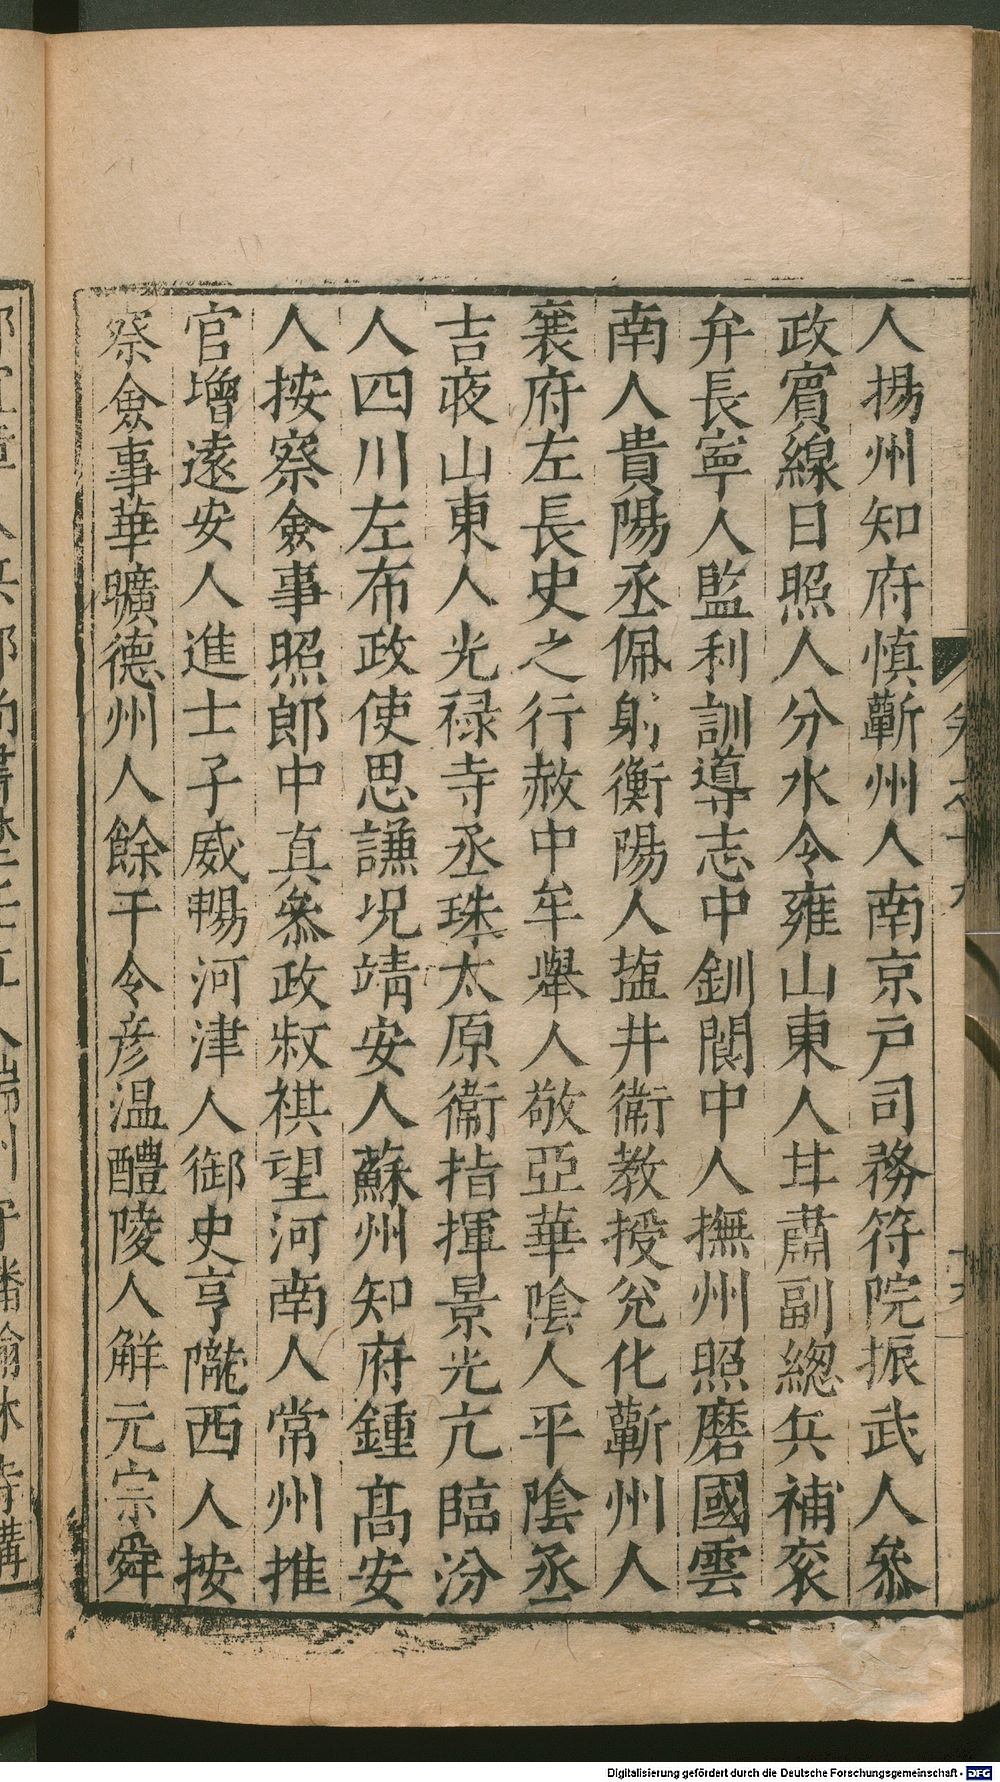 人揚州知府慎蘄州人南京戶司務符院振武人叅
政賔線日照人分水令雍山東人甘肅副總兵補衮
弁長寧人監利訓導志中釧閬中人撫州照磨國雲
南人貴陽丞佩躬衡陽人塩井衛教授兊化蘄州人
襄府左長史之行赦中牟舉人敬亞華隂人平隂丞
吉夜山東人光禄寺丞珠太原衞指揮景光亢臨汾
人四川左布政使思謙况靖安人蘇州知府鍾髙安
人按察僉事照郎中真叅政叔祺望河南人常州推
官增遠安人進士子威暢河津人御史亨隴西人按
察僉事華曠德州人餘干令彦温醴陵人解元宗舜
Digitalisierung gefördert durch die Deutsche Forschungsgemeinschaft - DFG